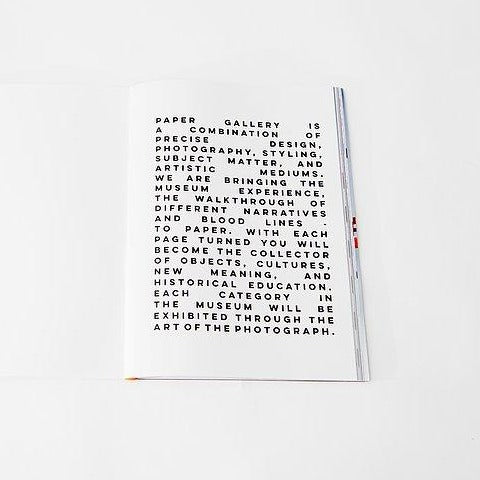 PAPER GALLERY IS
A COMBINATION OF
PRECISE DESIGN,
PHOTOGRAPHY, STYLING,
SUBJECT MATTER, AND
ARTISTIC MEDIUMS.
WE ARE BRINGING THE
MUSEUM EXPERIENCE,
THE WALKTHROUGH OF
DIFFERENT NARRATIVES
AND BLOOD LINES -
TO PAPER. WITH EACH
PAGE TURNED YOU WILL
BECOME THE COLLECTOR
OF OBJECTS, CULTURES,
NEW MEANING, AND
HISTORICAL EDUCATION.
EACH CATEGORY IN
THE MUSEUM WILL BE
EXHIBITED THROUGH THE
ART OF THE PHOTOGRAPH.